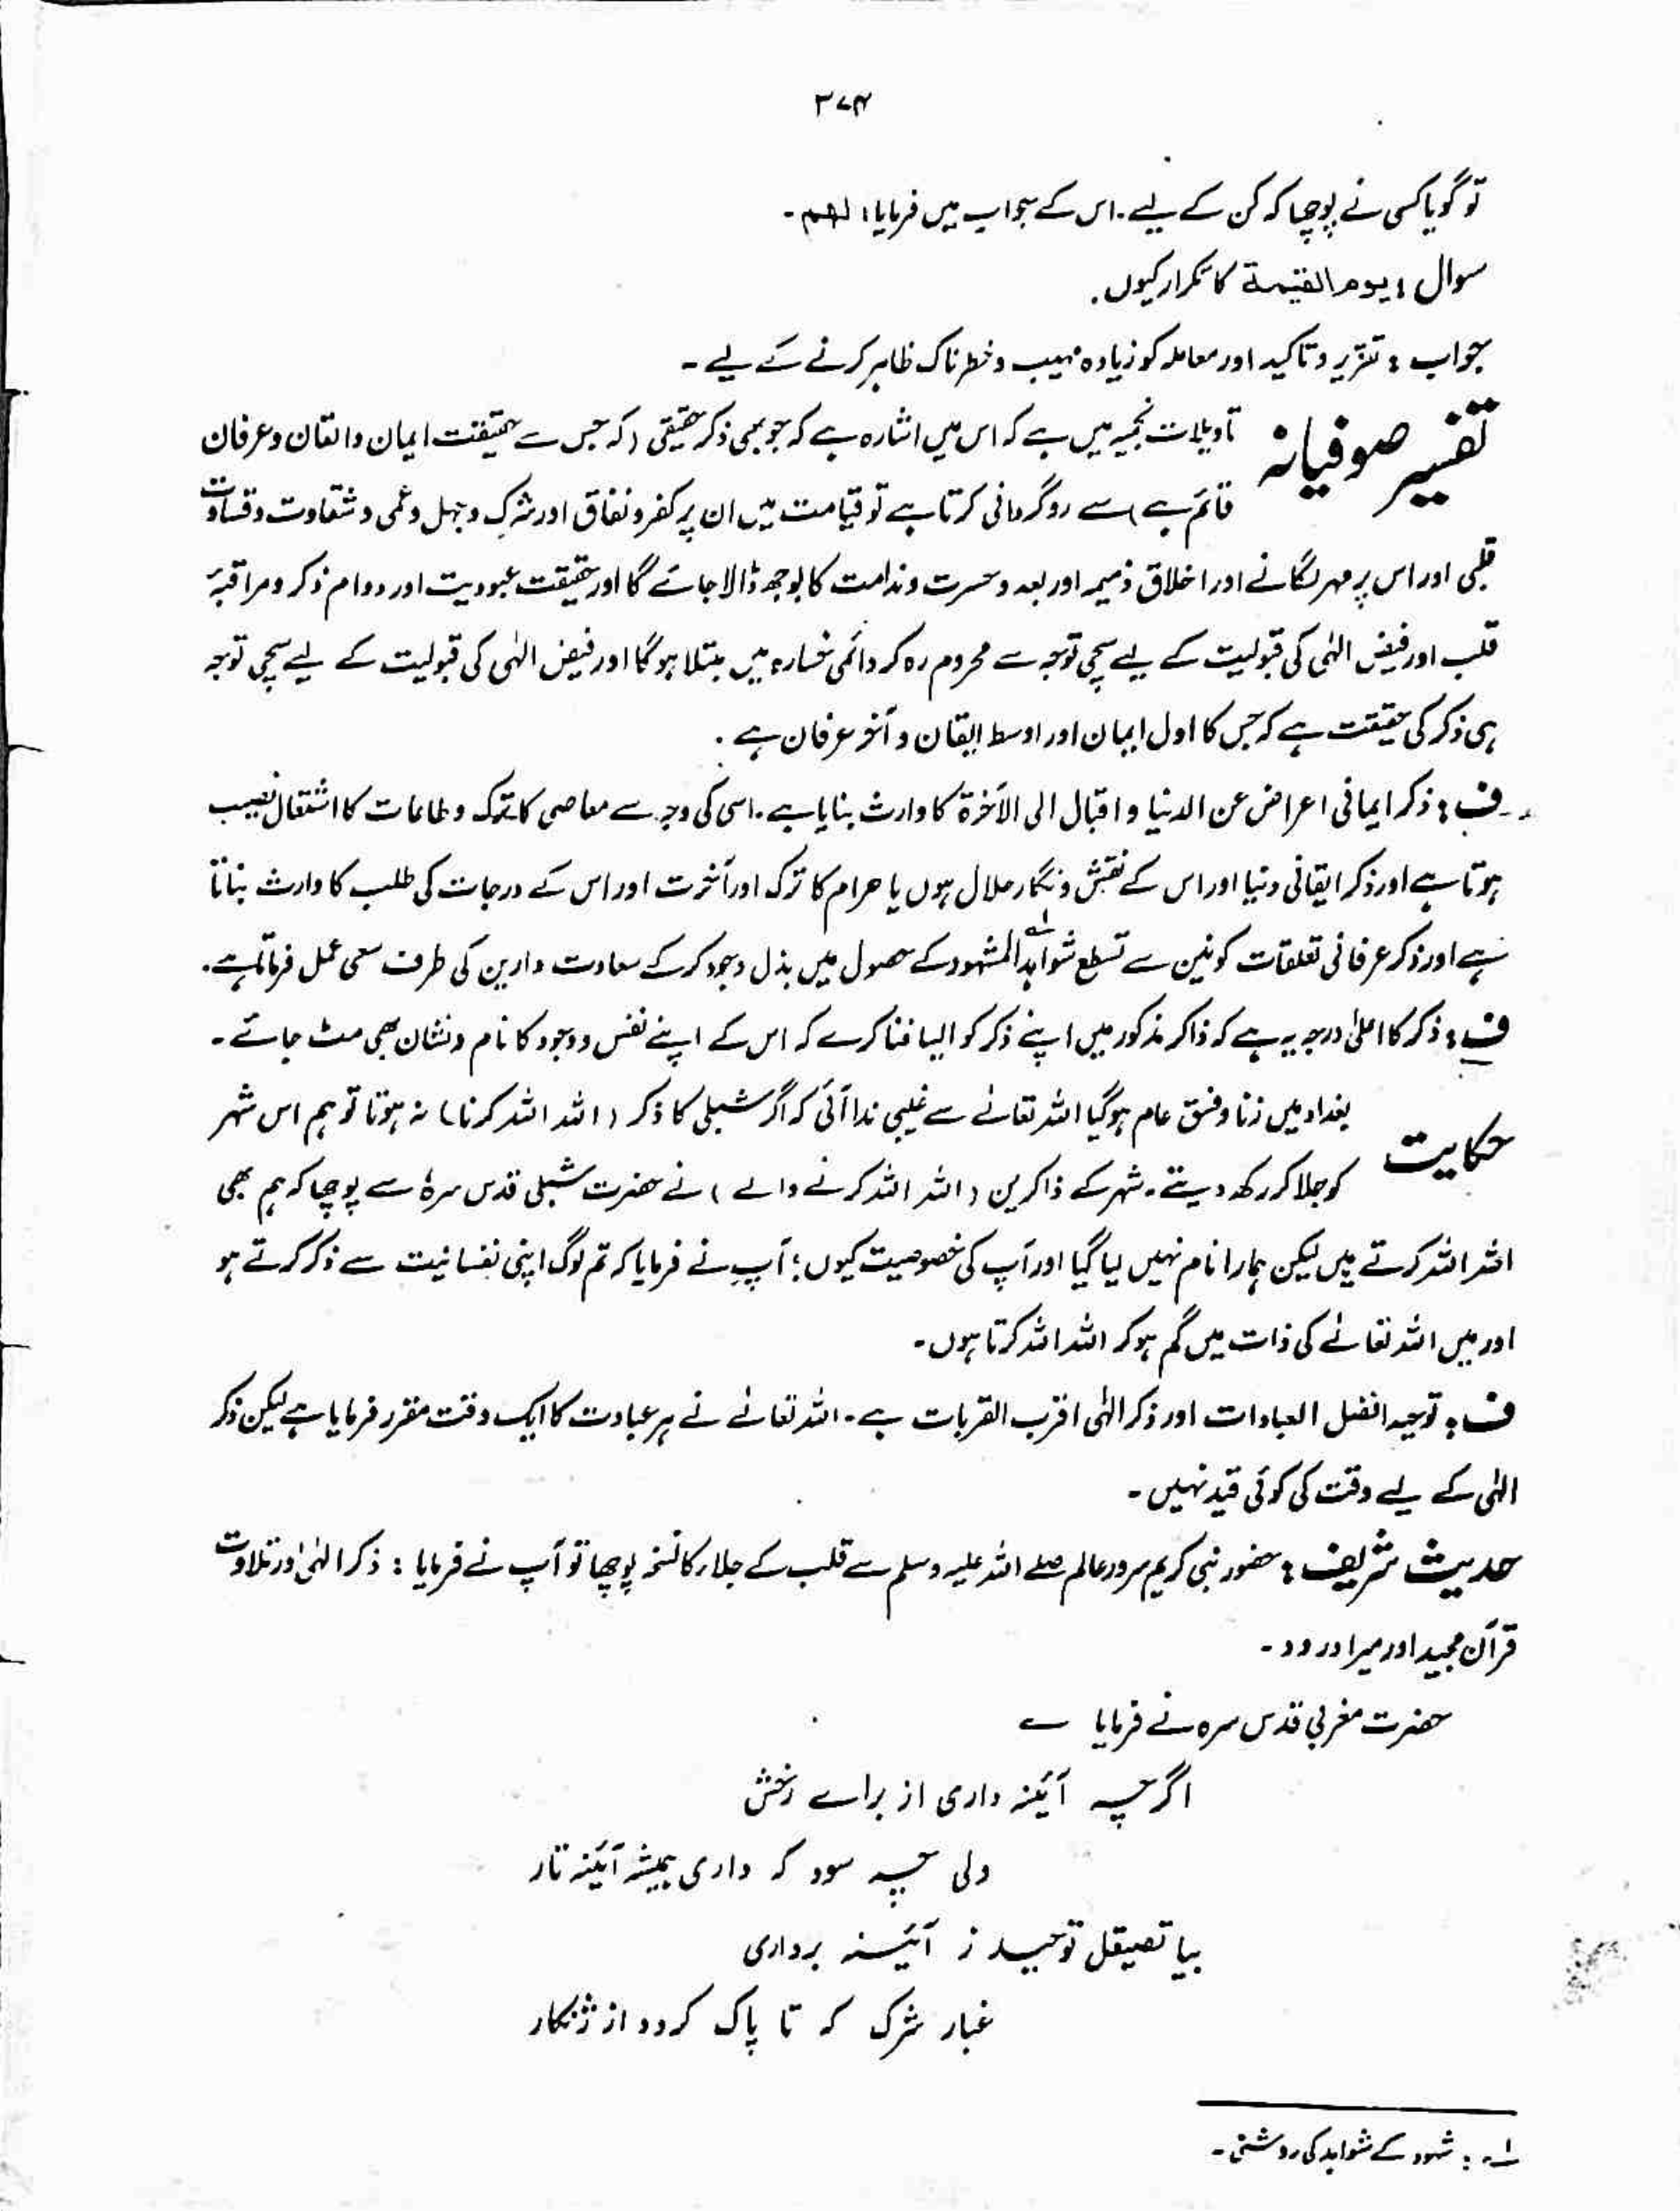 ۳۷۴
تو گویا کسی نے پوچھا کہ کن کے لیے۔ اس کے جواب میں فرمایا: لھم۔
سوال: یوم القیٰمة کا تکرار کیوں۔
جواب: تقریر و تاکید اور معاملہ کو زیادہ مہیب و خطرناک ظاہر کرنے کے لیے۔
تفسیر صوفیانہ تاویلات نجمیہ میں ہے کہ اس میں اشارہ ہے کہ جو بھی ذکر حقیقی (کہ جس سے حقیقت ایمان و ایقان و عرفان
قائم ہے) سے روگردانی کرتا ہے تو قیامت میں ان پر کفر و نفاق اور شرک و جہل و عمی و شقاوت و قساوت
قلبی اور اس پر مہر لگانے اور اخلاق ذمیمہ اور بعد و حسرت و ندامت کا بوجھ ڈالا جائے گا اور حقیقت عبودیت اور دوام ذکر و مراقبۂ
قلب اور فیض الٰہی کی قبولیت کے لیے سچی توجہ سے محروم رہ کر دائمی خسارہ میں مبتلا ہوگا اور فیض الٰہی کی قبولیت کے لیے سچی توجہ
ہی ذکر کی حقیقت ہے کہ جس کا اول ایمان اور اوسط ایقان و آخر عرفان ہے۔
ف: ذکر ایمانی اعراض عن الدنیا و اقبال الی الآخرة کا وارث بنایا ہے۔ اسی کی وجہ سے معاصی کا ترک و طاعات کا اشتغال نصیب
ہوتا ہے اور ذکر ایقانی دنیا اور اس کے نقش و نگار حلال ہوں یا حرام کا ترک اور آخرت اور اس کے درجات کی طلب کا وارث بناتا
ہے اور ذکر عرفانی تعلقات کونین سے تسطع شواہد المشہود۱ کے حصول میں بذل وجود کرکے سعادت دارین کی طرف سعی عمل فرماتا ہے۔
ف: ذکر کا اعلیٰ درجہ یہ ہے کہ ذاکر مذکور میں اپنے ذکر کو ایسا فنا کرے کہ اس کے اپنے نفس و وجود کا نام و نشان بھی مٹ جائے۔
حکایت بغداد میں زنا و فسق عام ہوگیا اللہ تعالےٰ سے غیبی ندا آئی کہ اگر شبلی کا ذکر (اللہ اللہ کرنا) نہ ہوتا تو ہم اس شہر
کو جلا کر رکھ دیتے۔ شہر کے ذاکرین (اللہ اللہ کرنے والے) نے حضرت شبلی قدس سرہٗ سے پوچھا کہ ہم بھی
اللہ اللہ کرتے ہیں لیکن ہمارا نام نہیں لیا گیا اور آپ کی خصوصیت کیوں؛ آپ نے فرمایا کہ تم لوگ اپنی نفسانیت سے ذکر کرتے ہو
اور میں اللہ تعالےٰ کی ذات میں گم ہوکر اللہ اللہ کرتا ہوں۔
ف: توحید افضل العبادات اور ذکر الٰہی اقرب القربات ہے۔ اللہ تعالےٰ نے ہر عبادت کا ایک وقت مقرر فرمایا ہے لیکن ذکر
الٰہی کے لیے وقت کی کوئی قید نہیں۔
حدیث شریف: حضور نبی کریم سرور عالم صلے اللہ علیہ وسلم سے قلب کے جلاء کا نسخہ پوچھا تو آپ نے فرمایا: ذکر الٰہی اور تلاوت
قرآن مجید اور میرا درود۔
حضرت مغربی قدس سرہ نے فرمایا ؎
اگرچہ آئینہ داری از براے رخش
ولی چہ سود کہ داری ہمیشہ آئینہ تار
بیا تصیقل توحید ز آئینہ برداری
غبار شرک کہ تا پاک کردد از ژنگار
۱؎: شہود کے شواہد کی روشنی۔